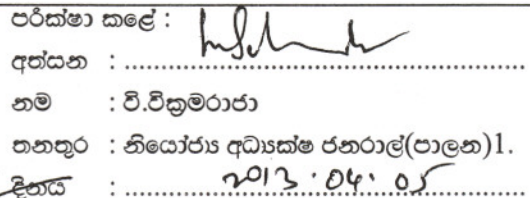 පරීක්ෂා කළේ :
අත්සන : ..................................................
නම : වි.වික්‍රමරාජා
තනතුර : නියෝජ්‍ය අධ්‍යක්ෂ ජනරාල්(පාලන)1.
දිනය : ............2013.04.05............